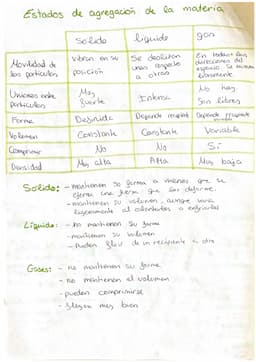 Estados de agregación de la materia
solido líquido gas
Movilidad de las partículas
vibran en su posición
Se deslizan unas respecto a otras
En todas las direcciones del espacio. Se mueven libremente
Uniones entre partículas
Muy fuerte
Intensa
No hay Son libres
Forma Definida Depende recipiente Depende recipiente
Volumen Constante Constante Variable
Comprimir No No Si
Densidad Muy alta Alta Muy baja
Solido: - mantienen su forma a menos que se
ejerza una fuerza que los deforme.
- mantienen su volumen, aunque varia
ligeramente al calentarlos o enfriarlos
Líquido: - No mantienen su forma
- mantienen su volumen
- Pueden fluir de un recipiente a otro
Gases: - no mantienen su forma
- no mantienen el volumen
- pueden comprimirse
- fluyen muy bien